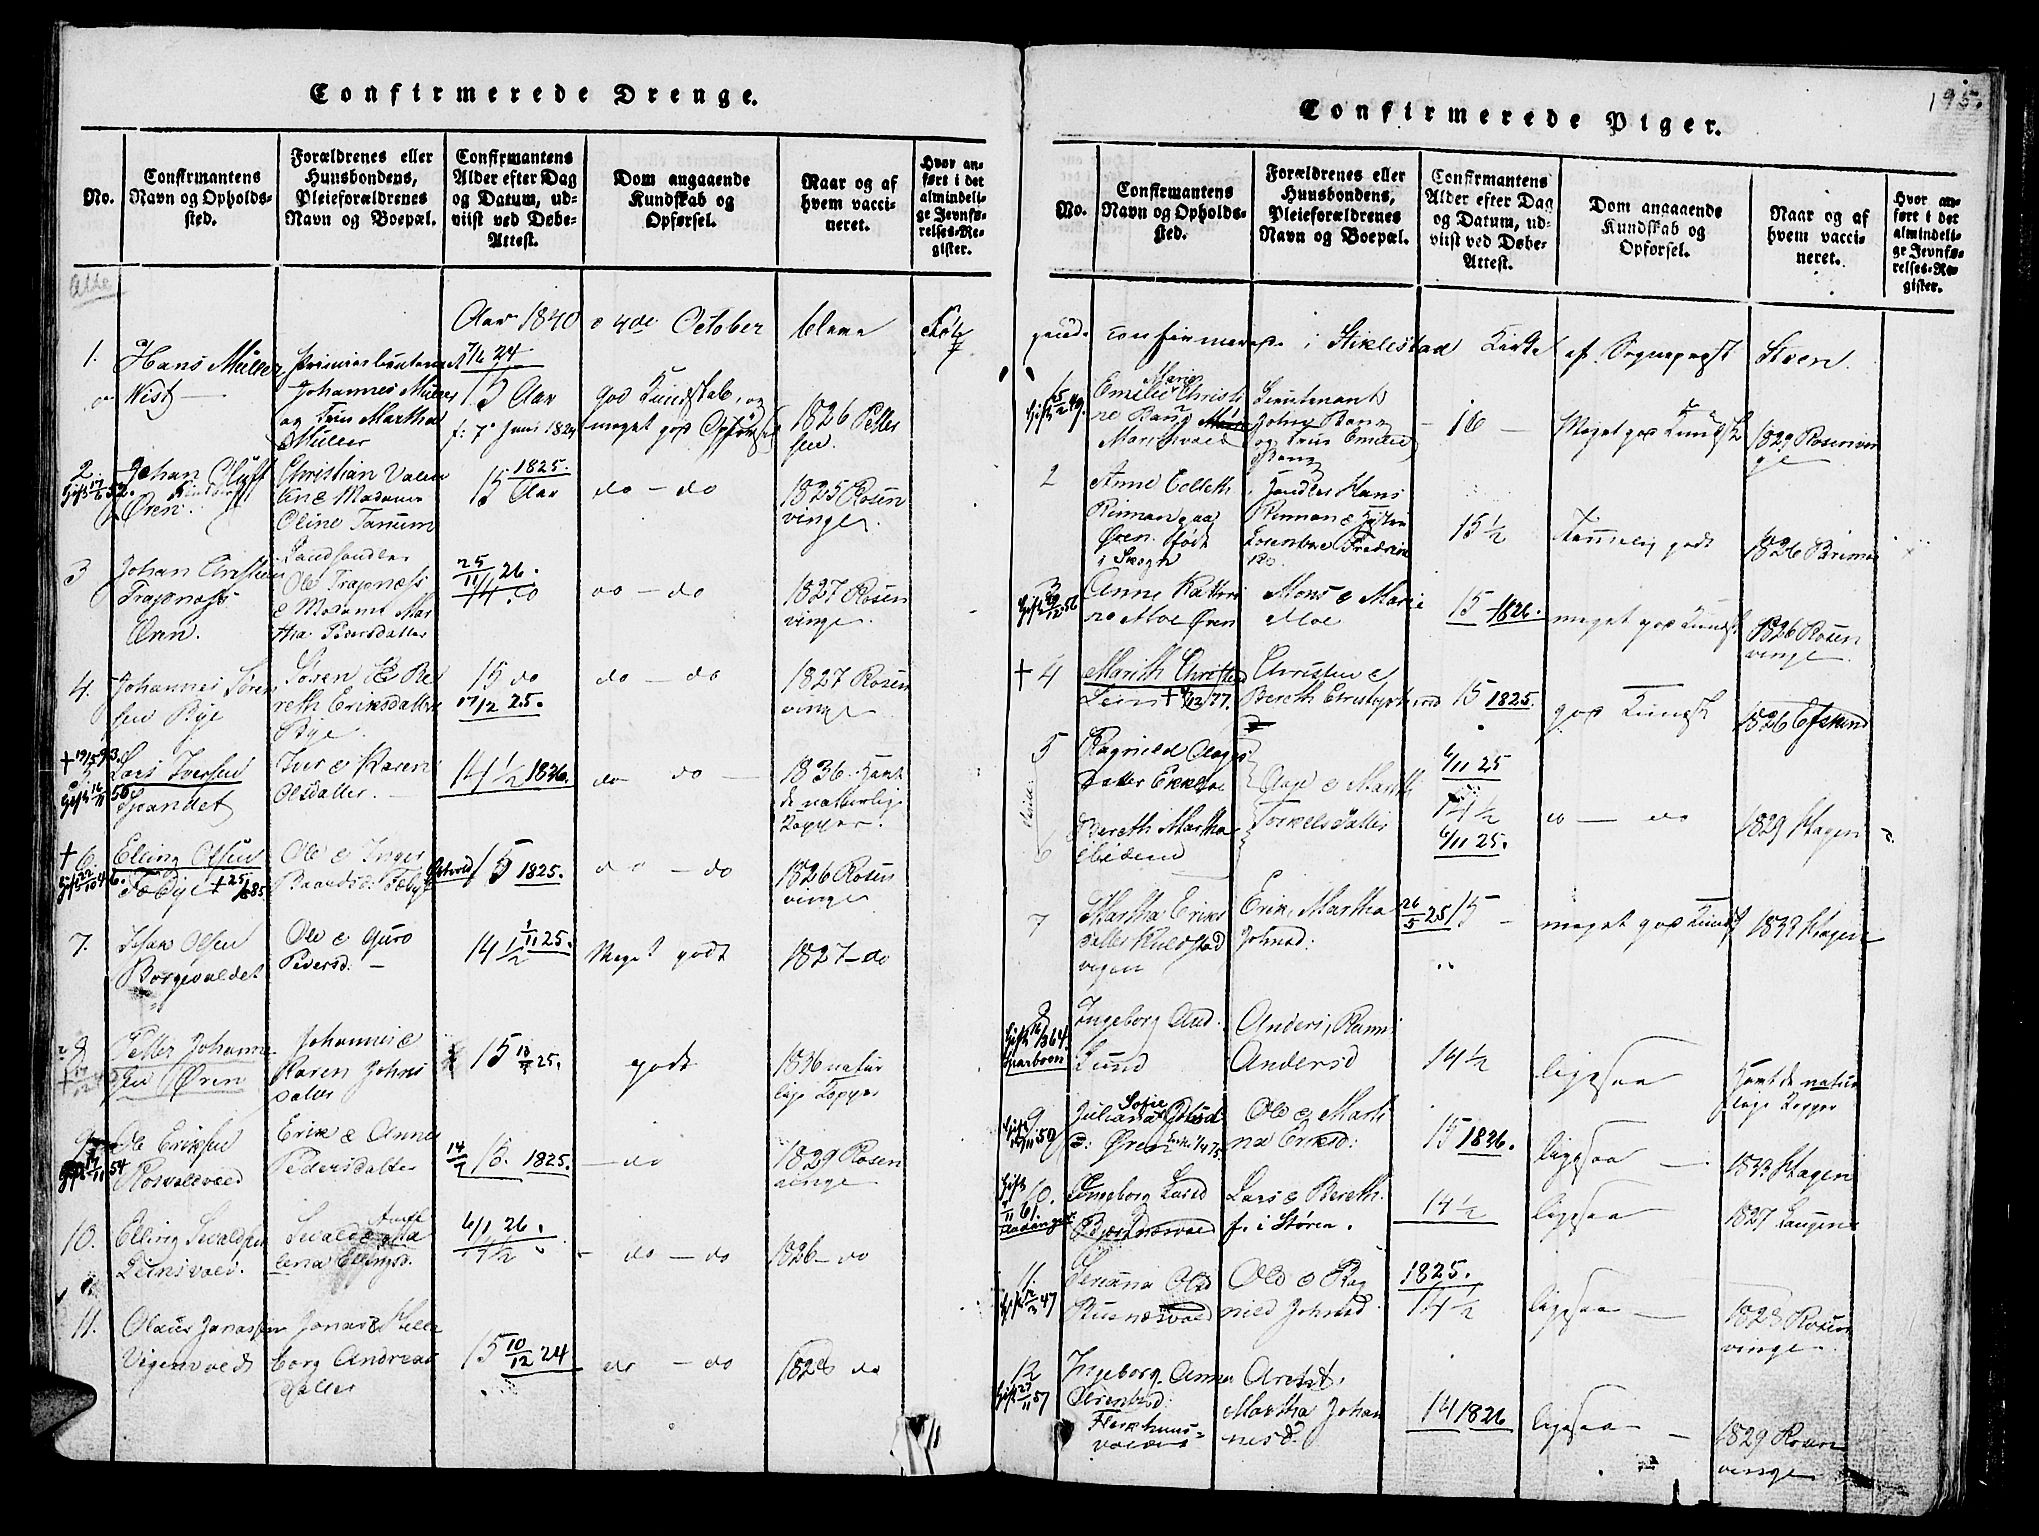 Confirmerede Drenge.
No.
Confirmantens
Navn og Opholds-
sted.
Forældrenes eller
Huusbondens,
Pleieforældrenes
Navn og Boepæl.
Confirmantens
Alder efter Dag
og Datum, ud-
viist ved Døbe-
Attest.
Dom angaaende
Kundskab og
Opførsel.
Naar og af
hvem vacci-
neret.
Hvor an-
ført i det
almindeli-
ge Jevnfø-
relses-Re-
gister.
Aar 1840 d 4de October bleve
1.
Hans Müller
Wist
Johannes Müller
og Fru Martha
Müller
7/6 24
15 Aar
f: 7 Juni 1824
god Kundskab, og
meget god Opførsel
1826 Petter
sen
2.
Gift 17/6 52.
Johan Oluff
Ören.
Christian Valen
tin & Madame
Oline Tanum
1825.
15 Aar
do — do
1825 Rosen
vinge
3
Johan Christian
Trapnæss
Ören.
Landhandler
Ole Trapnæss
& Madame Mar
tha Pedersdatter
25/11 26.
14
do — do
1827 Rosen
vinge
4.
Johannes Sören
sen Bye
Sören & Be
reth Eriksdatter
Bye
15 do
17/12 25.
do — do
1827 Rosen
vinge
+ 19/5 93.
5
Lars Iversen
Spandet
Iver & Karen
Olsdatter.
14 1/2 1826.
do do —
1836. havt
de naturlige
Kopper.
+ 6.
Gift 22/10 46.
Elling Olsen
Fæbye + 25/ 85
Ole & Inger
Baardsd: Fæbye
15 1825.
do — do
1826 Rosen
vinge
7.
Johan Olsen
Borgsvaldet
Ole & Guro
Pedersd. —
14 1/2 1/11 25.
Meget godt
1827 — do
8
Petter Johanne
sen Ören
Johannes &
Karen Johns
datter
15 13/ 25.
godt
1836 natur
lige Kopper
9
Gift 54
Ole Eriksen
Rosvoldvald
Erik & Anne
Pedersdatter
14/7 15. 1825.
— do
1829 Rosen
vinge
10.
Elling Sivaldsen
Leinsvald.
Sivald &
lena Ellingsd.
6/1 26.
14 1/2
— do — do
1826 — do
11.
Olaus Jonassen
Vigenvald
Jonas & Elle
borg Andreas
datter
15 10/12 24
do — do
1828 do
195.
Confirmerede Piger.
No.
Confirmantens
Navn og Opholds-
sted.
Forældrenes eller
Huusbondens,
Pleieforældrenes
Navn og Boepæl.
Confirmantens
Alder efter Dag
og Datum, ud-
viist ved Døbe-
Attest.
Dom angaaende
Kundskab og
Opførsel.
Naar og af
hvem vacci-
neret.
Hvor an-
ført i det
almindeli-
ge Jevnfø-
relses-Re-
gister.
confirmerede i Stiklestad Kirke af Sognepræst Steen.
1
Gift 49.
Marie
Emilie Christi
ne Bang
Marisvald
Lieutenant
John Bang
og Emilie
Bang
— 16 —
Meget god Kundsk
1829 Rosenvin
ge
2
Anne Colleth
Rinnan paa
Ören. född
i Skogn
Handler Hans
Rinnan &
15 1/2
temmelig godt
1826 Brim
3
Gift 29/12 56
Anne Kathri
ne Moe Ören
Mons & Marie
Moe
15 — 1826.
meget god Kundsk
1826 Rosen
vinge
+ 4
Marith Christensd
Lein + 9/12 77.
Christen &
Bereth Christophersd
15 1825.
god Kundsk
1826 Efskind
5
Ragnild Aages
datter Ekkloe
Aage & Marith
Torkelsdatter
6/11 25
14 1/2
do — do
1829 Hagen
6
Bereth Martha
ibidem
6/11 25.
7
Martha Eriks
datter Kulstad
vigen
Erik, Martha
Johnsd:
26/5 25 15 —
meget god Kundsk
1833 Hagen
8
Gift 16/3 64.
Ingeborg And.
Lund
Anders, Ranni
Andersd
14 1/2
ligesaa
Havt de natur
lige Kopper
9
Gift 50
Sofie
Juliana Olsd
Ören
Ole & Marti
na Eriksd:
15 1826.
ligesaa —
1833 Hagen
Gift
10.
Ingeborg Larsd
Bjørknesvald
Lars & Bereth.
f. i Stören.
14 1/2
ligesaa
1827 Hagen
11
Gift 12/3 47
Serianna Olsd
Rusnæsvald
Ole & Rag
nild Johnsd.
1825.
14 1/2
ligesaa —
1828 Rosen
vinge
12
Gift 27/11 57
Ingeborg Anna
Arentsd:
Flexkhuus-
valden
Arent,
Martha Johan
nesd.
14 1826
ligesaa —
1829 Rosen
vinge